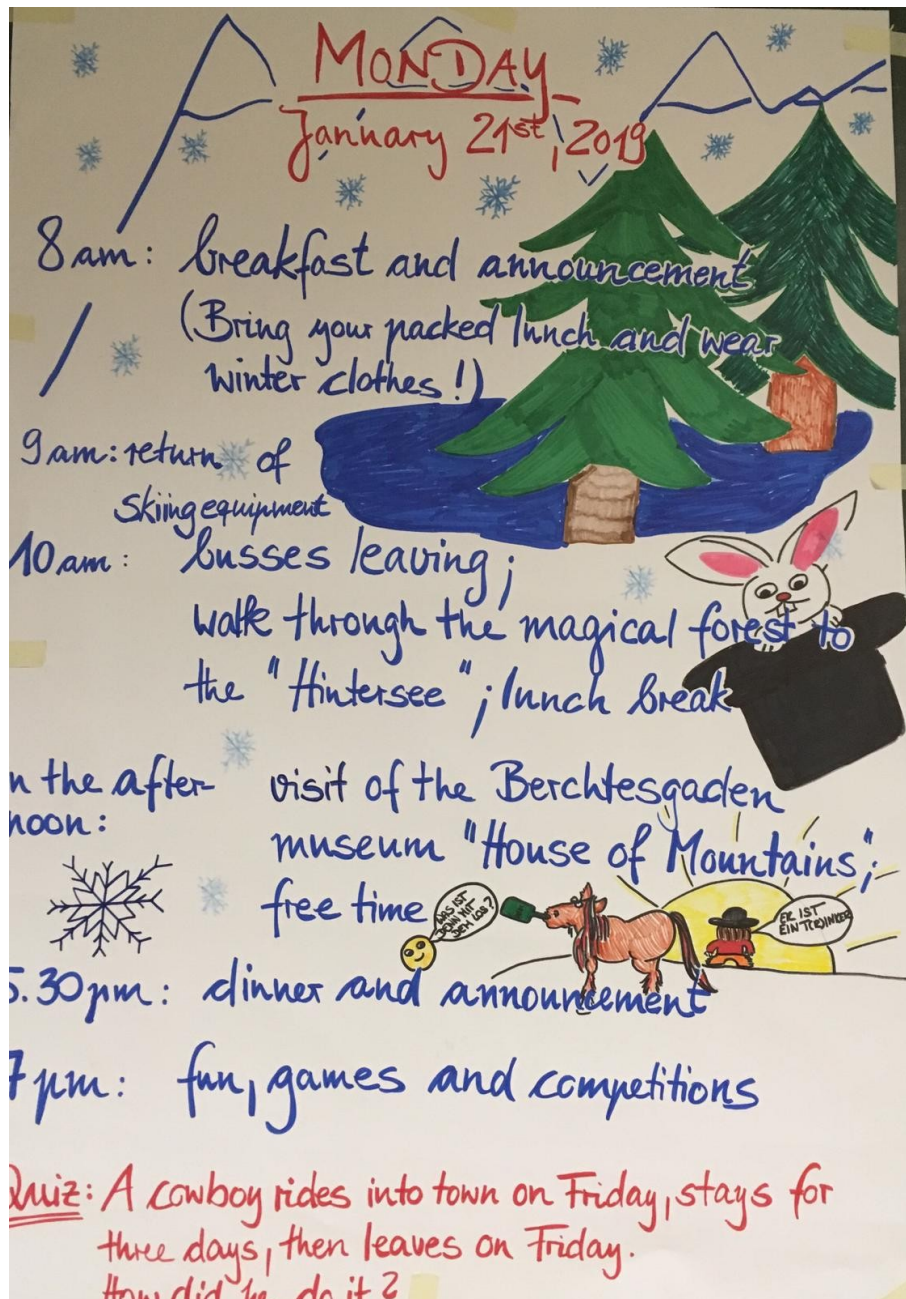 MONDAY
January 21st, 2019
8 am: breakfast and announcement
(Bring your packed lunch and wear
winter clothes!)
9 am: return of
skiing equipment
10 am: busses leaving;
walk through the magical forest to
the "Hintersee"; lunch break
n the after- visit of the Berchtesgaden
noon: museum "House of Mountains";
free time
WAS IST
DENN MIT
DEM LOS?
ER IST
EIN TRINKER
5.30 pm: dinner and announcement
7 pm: fun, games and competitions
Quiz: A cowboy rides into town on Friday, stays for
three days, then leaves on Friday.
How did he do it?